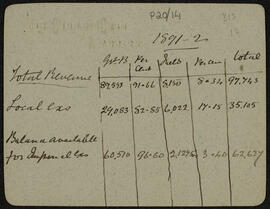 P20/14
1891-2
Gt. B. Per Cent Ireld Per cen total
Total Revenue 89,593 91.66 8,150 8.34 97,743
Local exs 29,083 82.85 6,022 17.15 35,105
Balance available
for Imperial exs 60,510 96.60 3.40 62,637